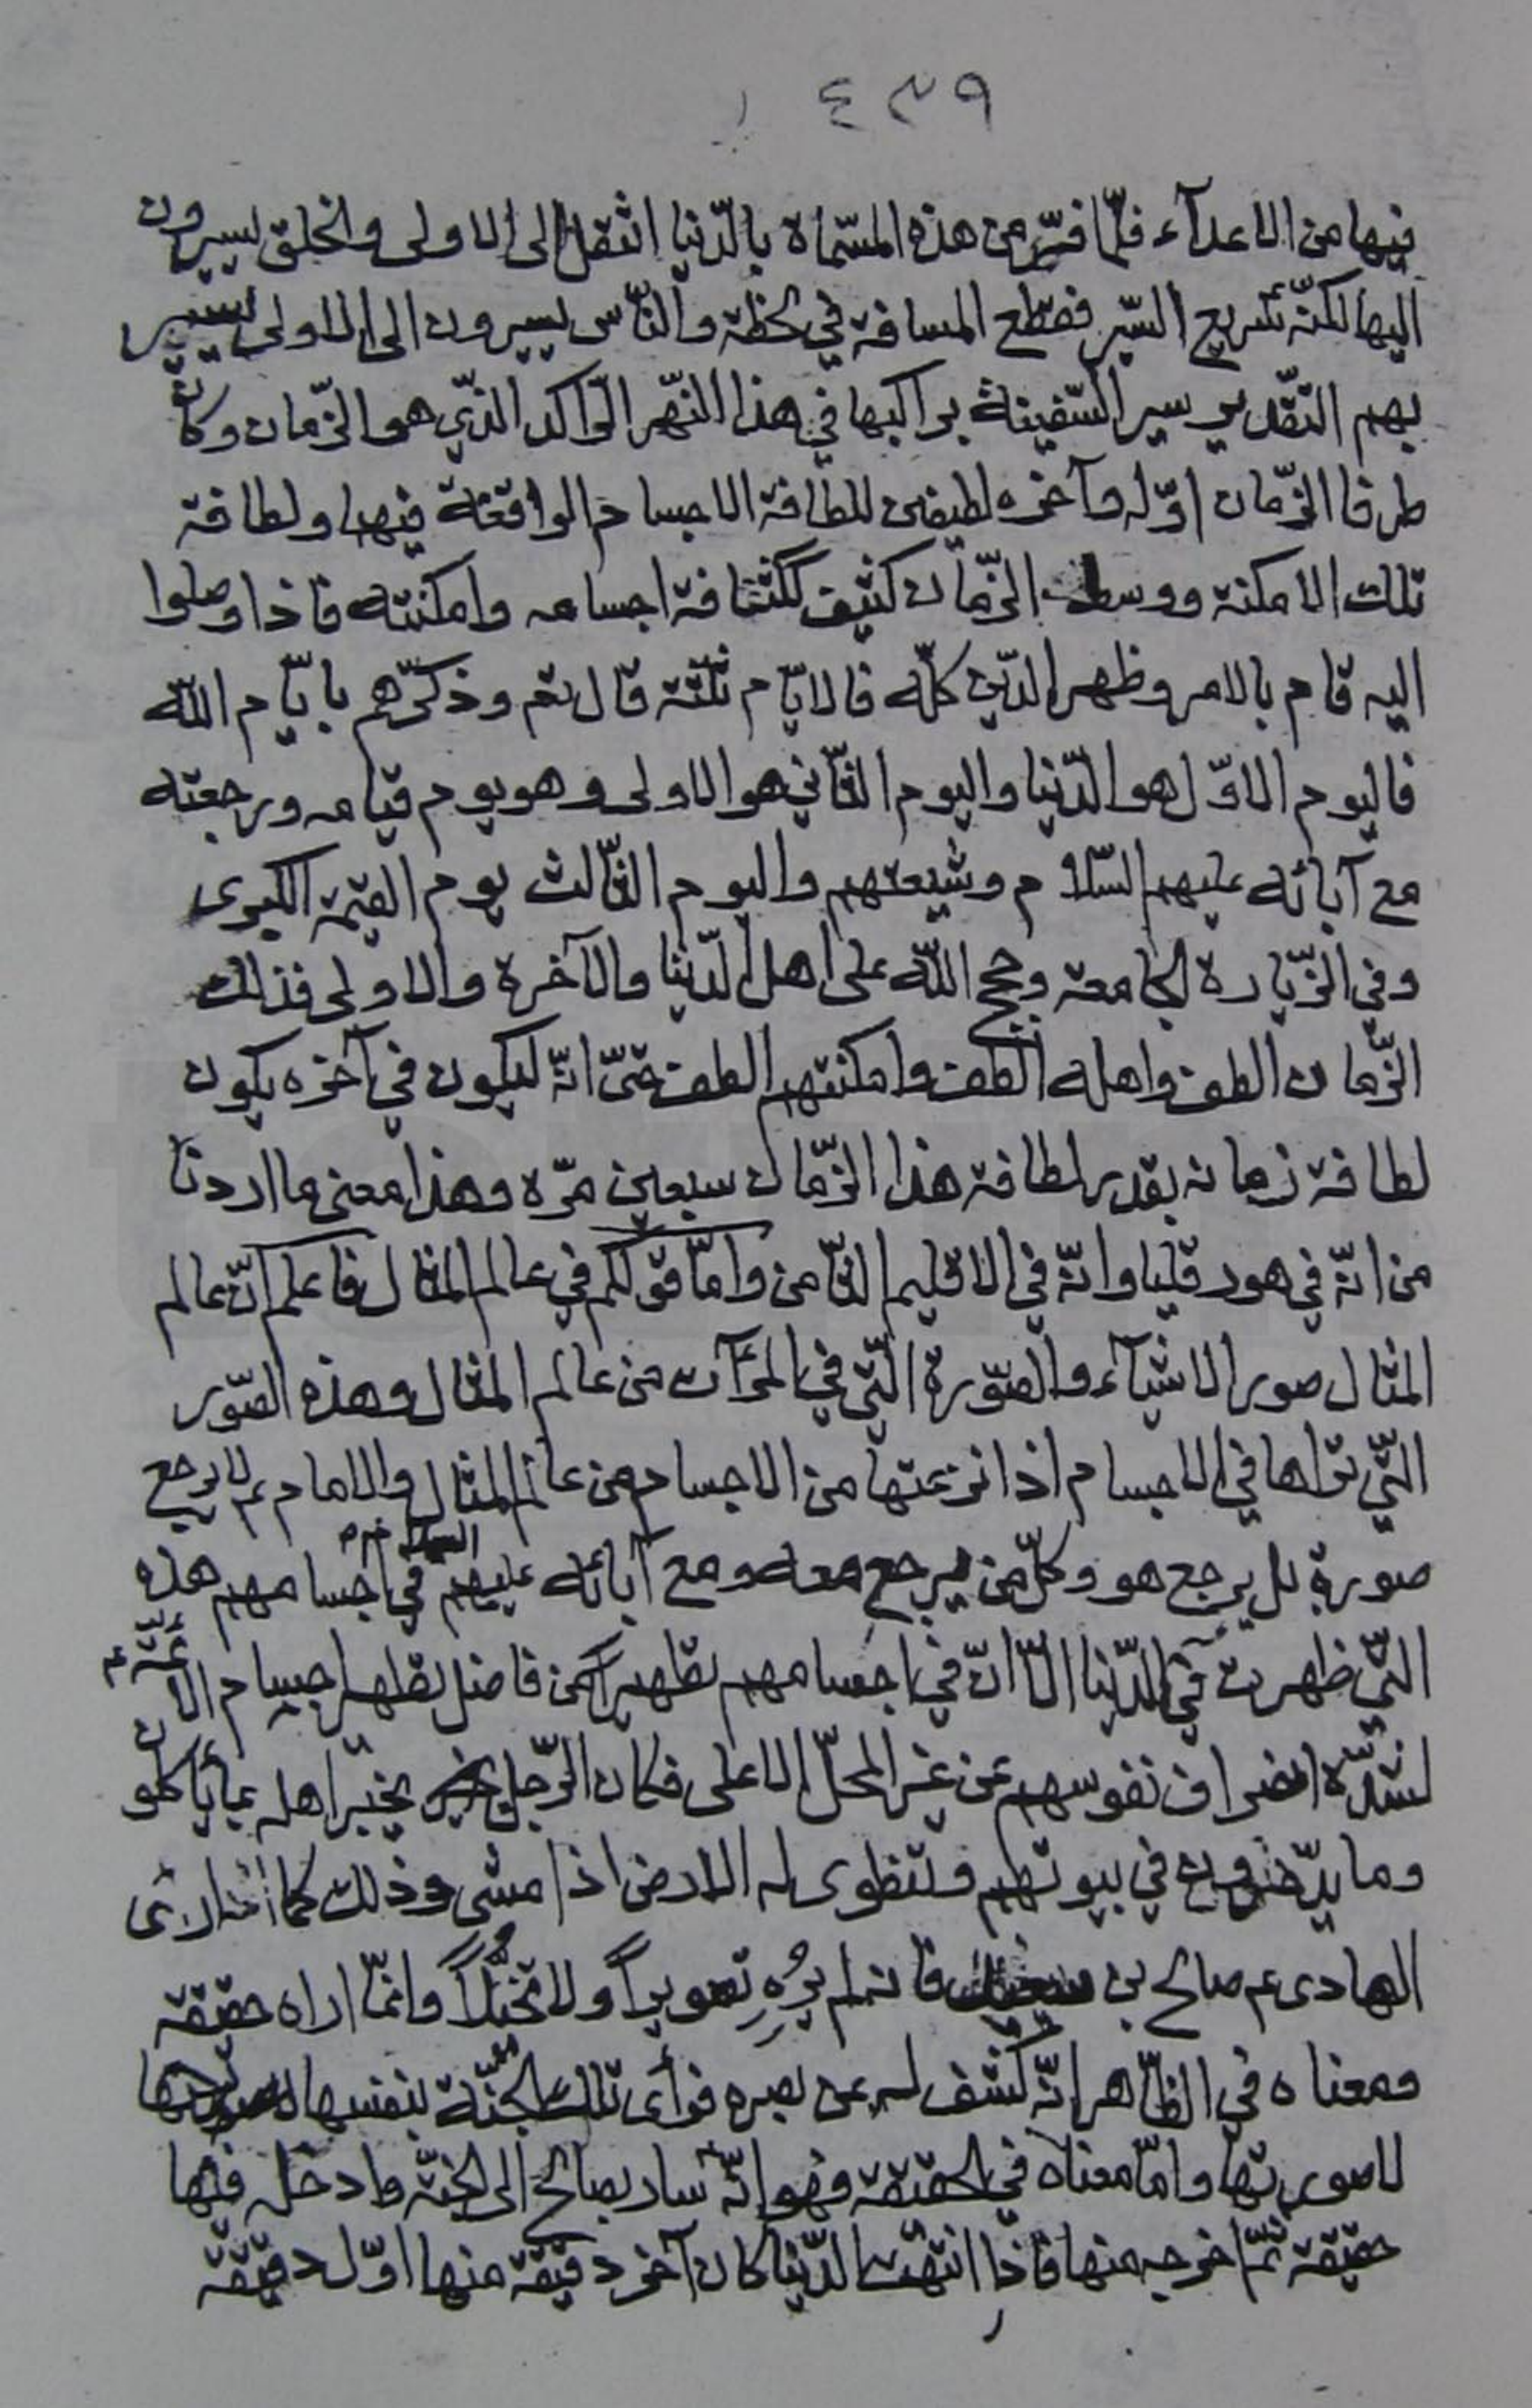 ٤٣٩
فيها من الاعدآء فلمّا فرّ من هذه المسمّاة بالدّنيا انتقل الى الاولى والخلق يسيرون
اليها لكنّه سريع السّير فقطع المسافة في لحظة والنّاس يسيرون الى الاولى يسير
بهم التقدير سير السّفينة براكبها في هذا النّهر الرّاكد الذّي هو الزّمان وكان
طرفا الزّمان اوّله وآخره لطيفين للطافة الاجسام الواقعة فيهما ولطافة
تلك الامكنة ووسط الزّمان كثيف لكثافة اجسامه وامكنته فاذا وصلوا
اليه قام بالامر وظهر الدّين كلّه فالايّام ثلثة قال تعم وذكّرهم بايّام اللّه
فاليوم الاوّل هو الدّنيا واليوم الثّاني هو الاولى وهو يوم قيامه ورجعته
مع آبائه عليهم السّلام وشيعتهم واليوم الثّالث يوم القيمة الكبرى
وفي الزّيارة الجامعة وحجج اللّه على اهل الدّنيا والآخرة والاولى فذلك
الزّمان الطف واهله الطف وامكنتهم الطف حتّى انّه ليكون في آخره يكون
لطافة زمانه بقدر لطافة هذا الزّمان سبعين مرّة وهذا معنى ما اردنا
من انّه في هورقليا وانّه في الاقليم الثّامن وامّا قولكم في عالم المثال فاعلم انّ عالم
المثال صور الاشيآء والصّورة الّتي في المرآت من عالم المثال وهذه الصّور
الّتي تراها في الاجسام اذا نزعتها من الاجسام من عالم المثال والامام عم لا يرجع
صورة بل يرجع هو وكلّ من يرجع معه ومع آبائه عليهم السلام في اجسامهم هذه
الّتي ظهرت في الدّنيا الّا انّ في اجسامهم تطهيراً من فاضل تطهير اجسام الائمّة عم
لشدّة انصراف نفوسهم عن غير المحلّ الاعلى فكان الرّجل يخبّر اهله بما ياكلون
وما يدّخرون في بيوتهم وتنطوى له الارض اذا مشى وذلك كما ارى
الهادى عم صالح بن فانه لم يُرِهِ تصويراً ولا تخيُّلاً وانّما اراه حقيقة
ومعناه في الظّاهر انّه كشف له عن بصره فرأى تلك الجنّة بنفسها
لاصورتها وامّا معناه في الحقيقة فهو انّه سار بصالح الى الجنّة وادخله فيها
حقيقة ثمّ اخرجه منها فاذا انتهت الدّنيا كان آخر دقيقة منها اوّل دقيقة